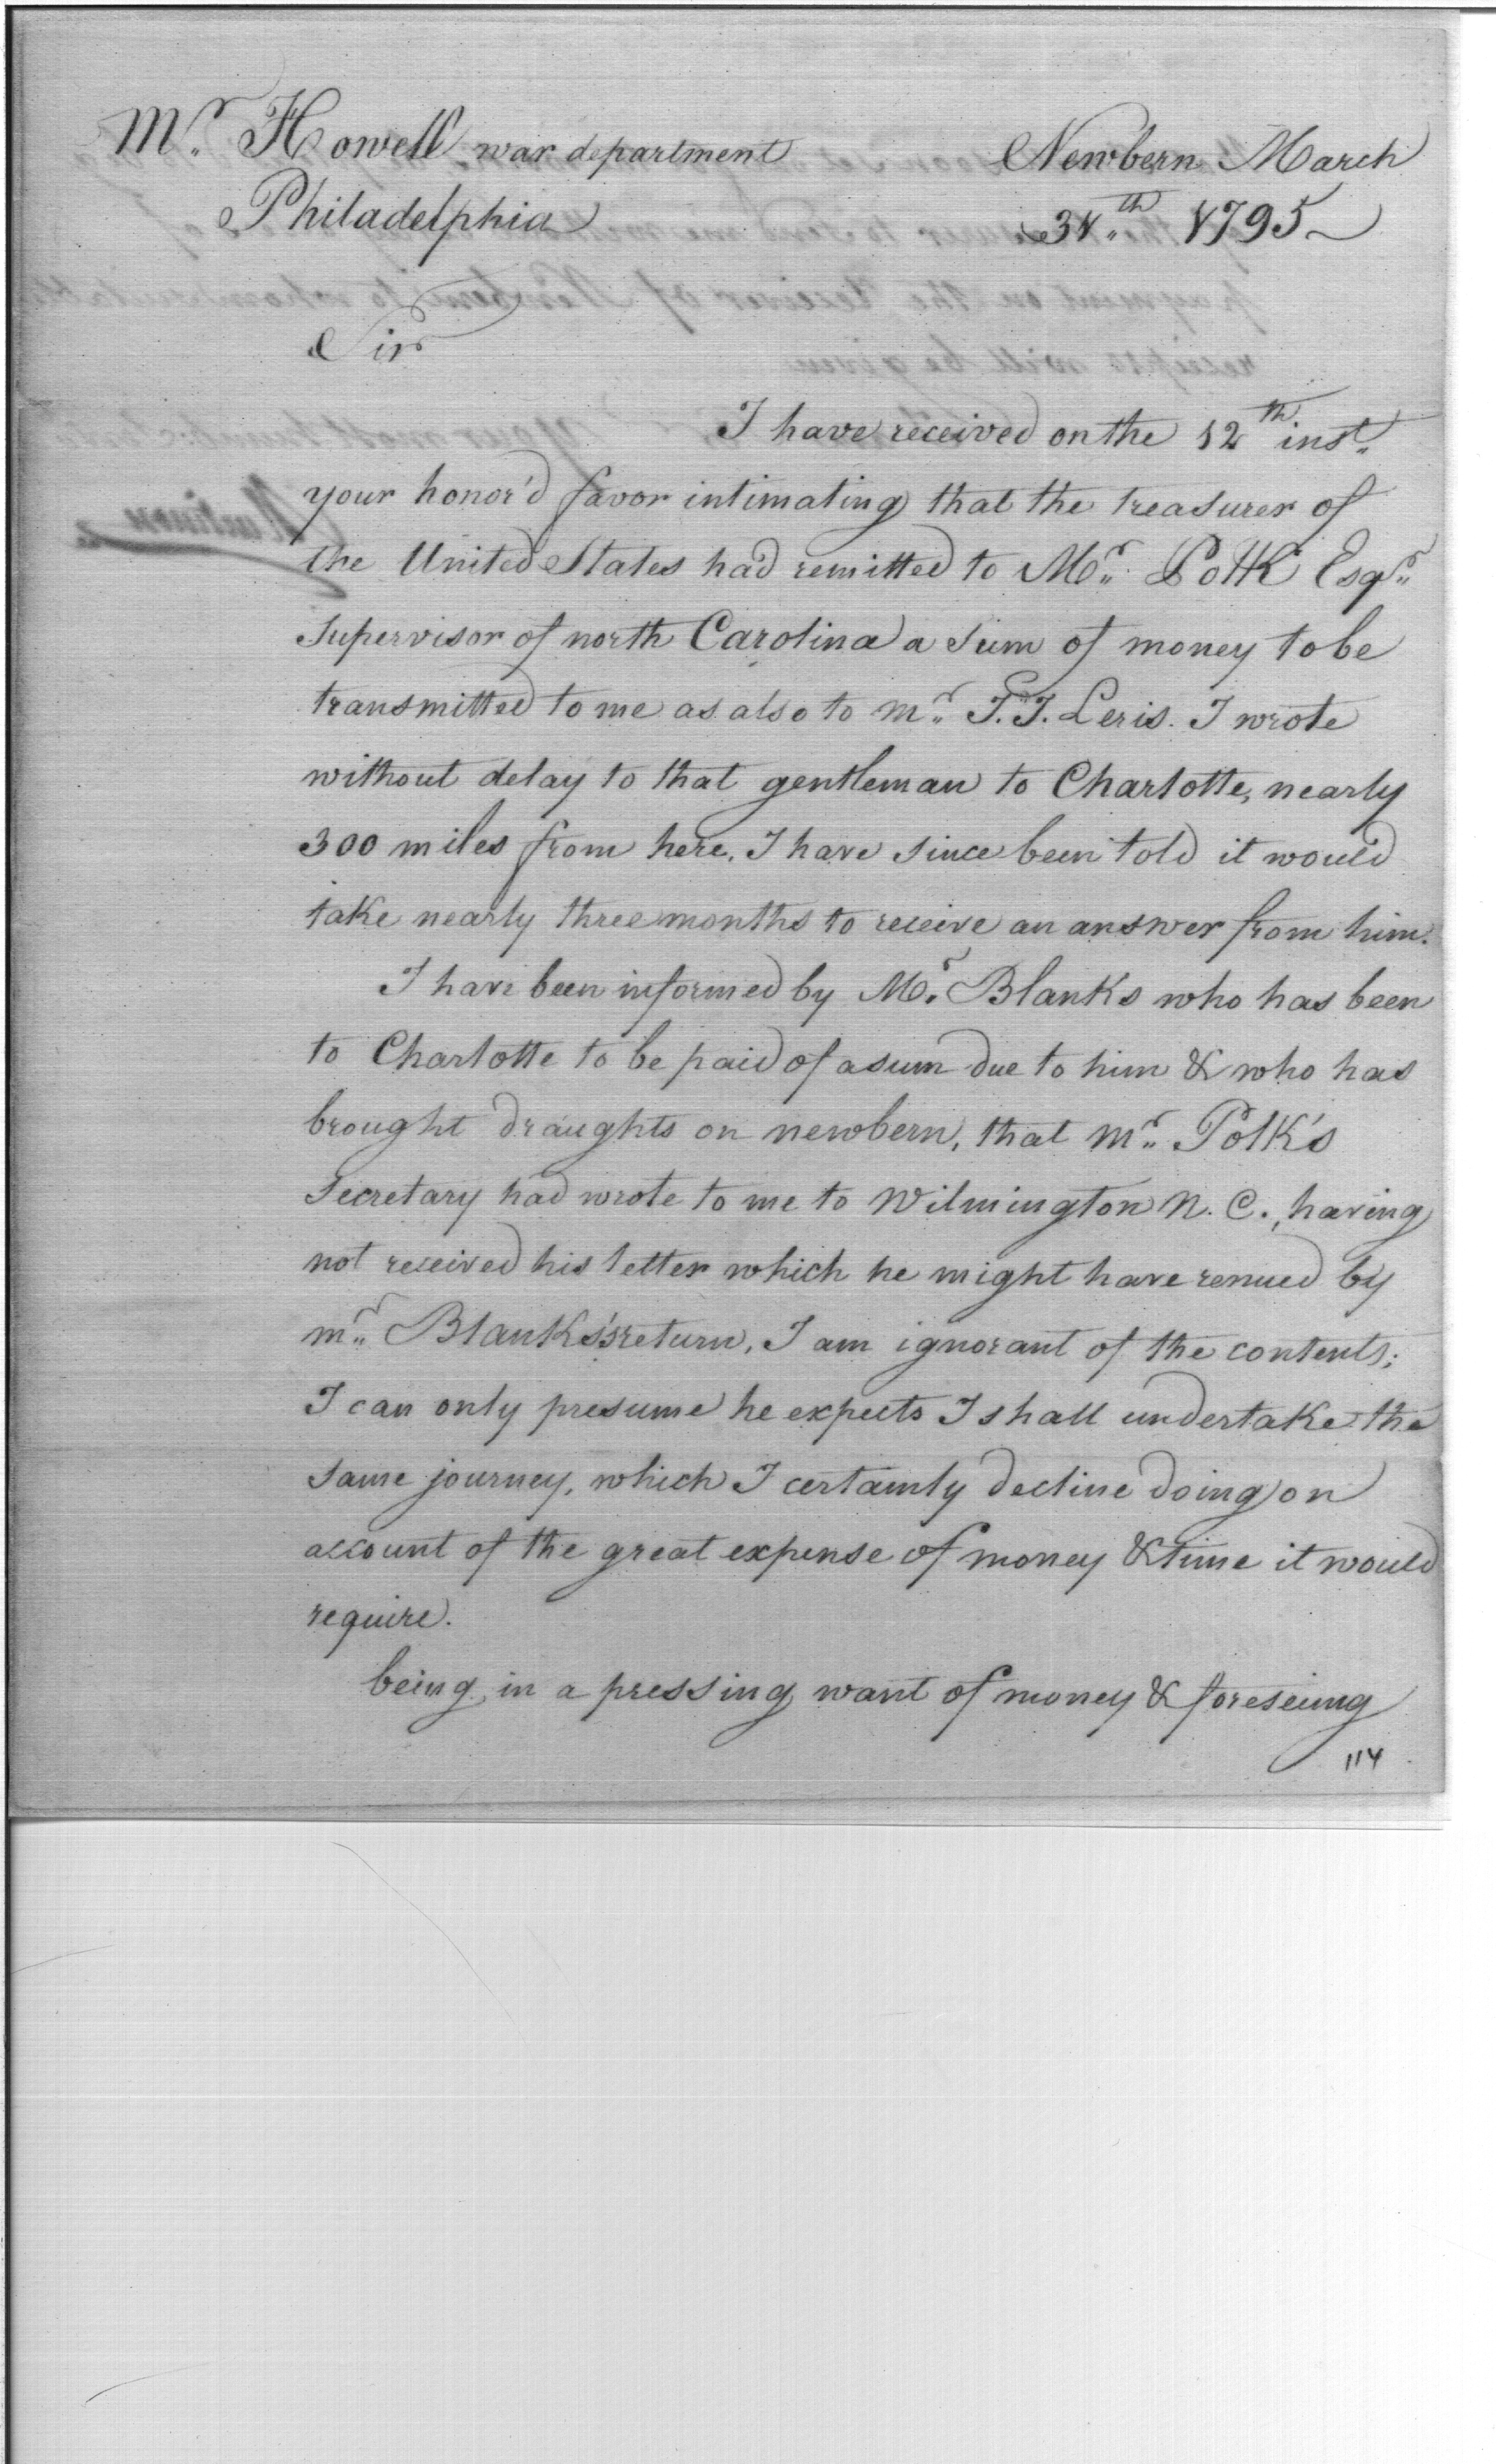 Mr. Howell war department
Newbern March
Philadelphia
31th 1795
Sir
I have received on the 12th inst.
your honor'd favor intimating that the treasurer of
the United States had remitted to Mr. Polk Esqr.
supervisor of north Carolina a sum of money to be
transmitted to me as also to mr. T.T. Leris. I wrote
without delay to that gentleman to Charlotte, nearly
300 miles from here. I have since been told it would
take nearly three months to receive an answer from him.
I have been informed by Mr. Blanks who has been
to Charlotte to be paid of a sum due to him & who has
brought draughts on newbern, that mr. Polk's
Secretary had wrote to me to Wilmington N. C., having
not received his letter which he might have renued by
mr. Blanks's return, I am ignorant of the contents;
I can only presume he expects I shall undertake the
same journey, which I certainly decline doing on
account of the great expense of money & time it would
require.
being in a pressing want of money & foreseeing
114